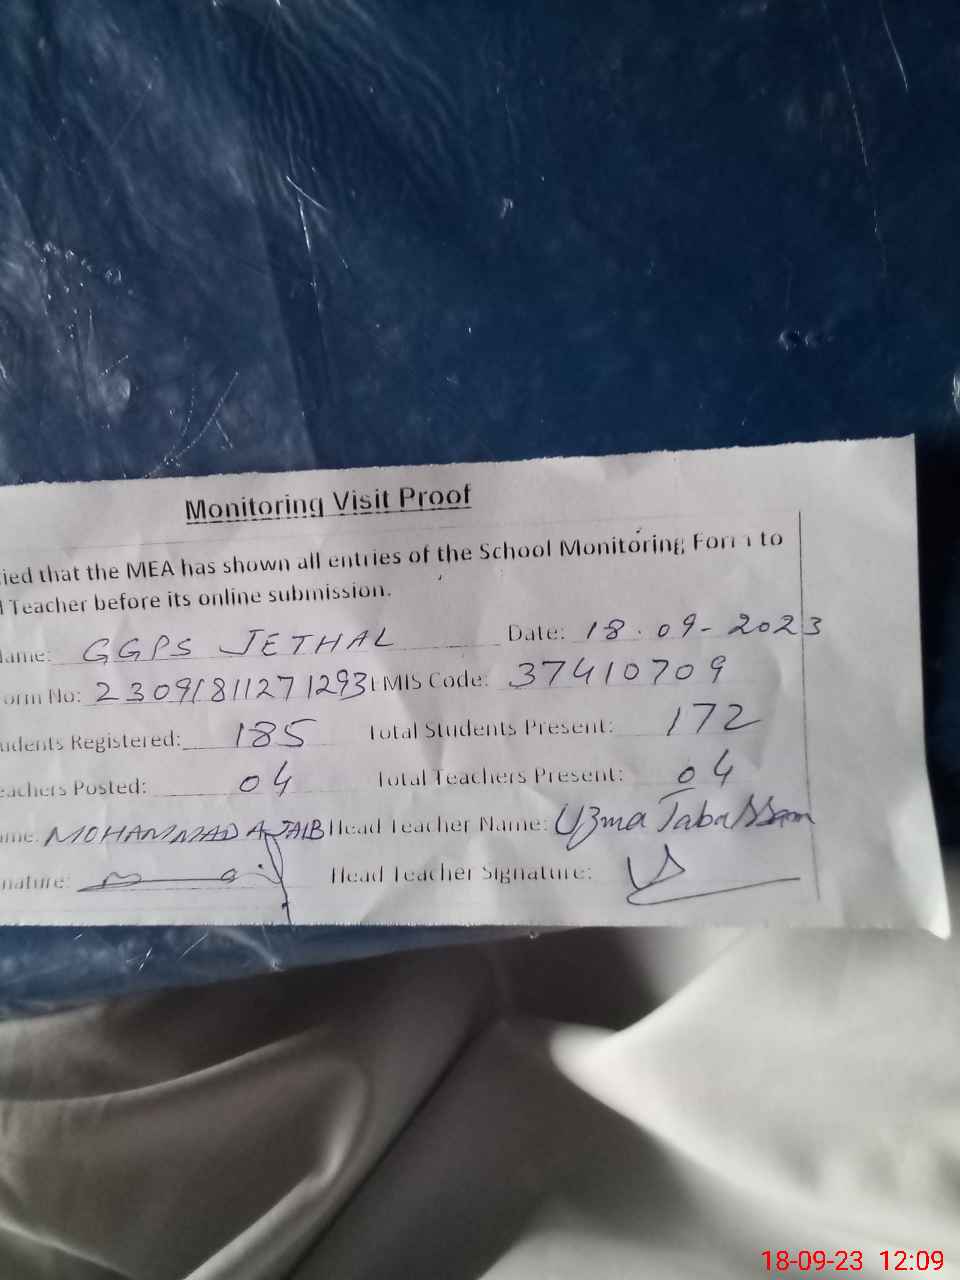 Monitoring Visit Proof
ied that the MEA has shown all entries of the School Monitoring Form to
Teacher before its online submission.
ame: GGPS JETHAL Date: 18.09-2023
orm No: 23091811271293 EMIS Code: 37410709
udents Registered: 185 Total Students Present: 172
eachers Posted: 04 Total Teachers Present: 04
me: MOHAMMAD AJAIB Head Teacher Name: Uzma Tabassam
nature: Head Teacher Signature:
18-09-23 12:09